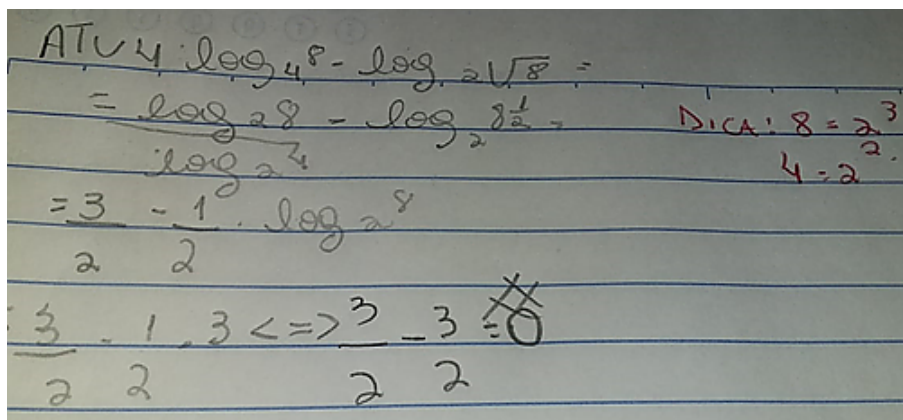 ATV 4 log₄8 - log₂√8 =
= log₂8 - log₂8^½ =
Dica: 8 = 2³
log₂4
4 = 2².
= 3/2 - 1/2 . log₂8
= 3/2 - 1/2 . 3 <=> 3/2 - 3/2 = 0